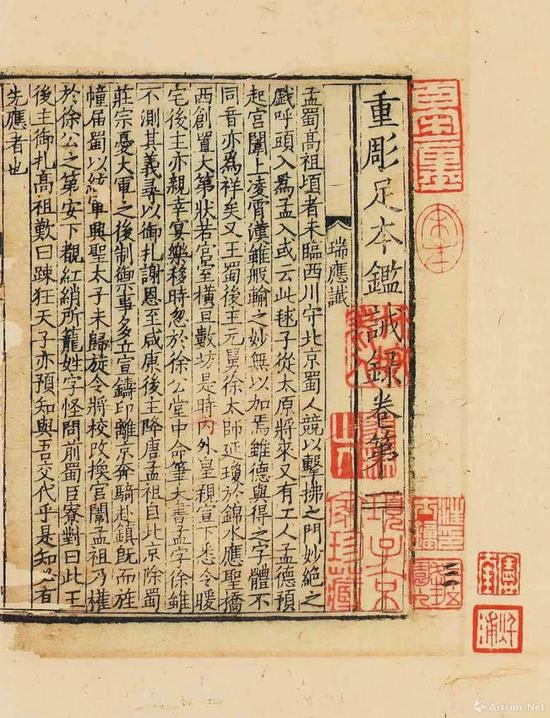 重彫足本鑑誡錄卷第一
瑞應讖
孟蜀高祖頃者未臨西川守北京蜀人競以擊拂之門妙絕之
戲呼頭入為孟入或云此毬子從太原將來又有工人孟德預
起宮闈上凌霄潼雖般輸之妙無以加焉雖德與得之字體不
同音亦為祥矣又王蜀後主元舅徐太師延瓊於錦水應聖橋
西創置大第狀若宮室橫亘數坊是時內外皇親宣下悉令暖
宅後主亦親幸宴樂移時忽於徐公堂中命筆大書孟字徐雖
不測其義尋以御札謝恩至咸康後主降唐孟祖自北京除蜀
莊宗憂大軍之後制御事多立宣鑄印離京奔騎赴鎮既而旌
幢届蜀以軍興聖太子未歸旋令將校改換宮闈孟祖乃權
於徐公之第安下觀紅綃所籠姓字怪問前蜀臣寮對曰此王
後主御札高祖歎曰疎狂天子亦預知與吾交代乎是知必有
先應者也
項子京
家珍藏
Artron.Net